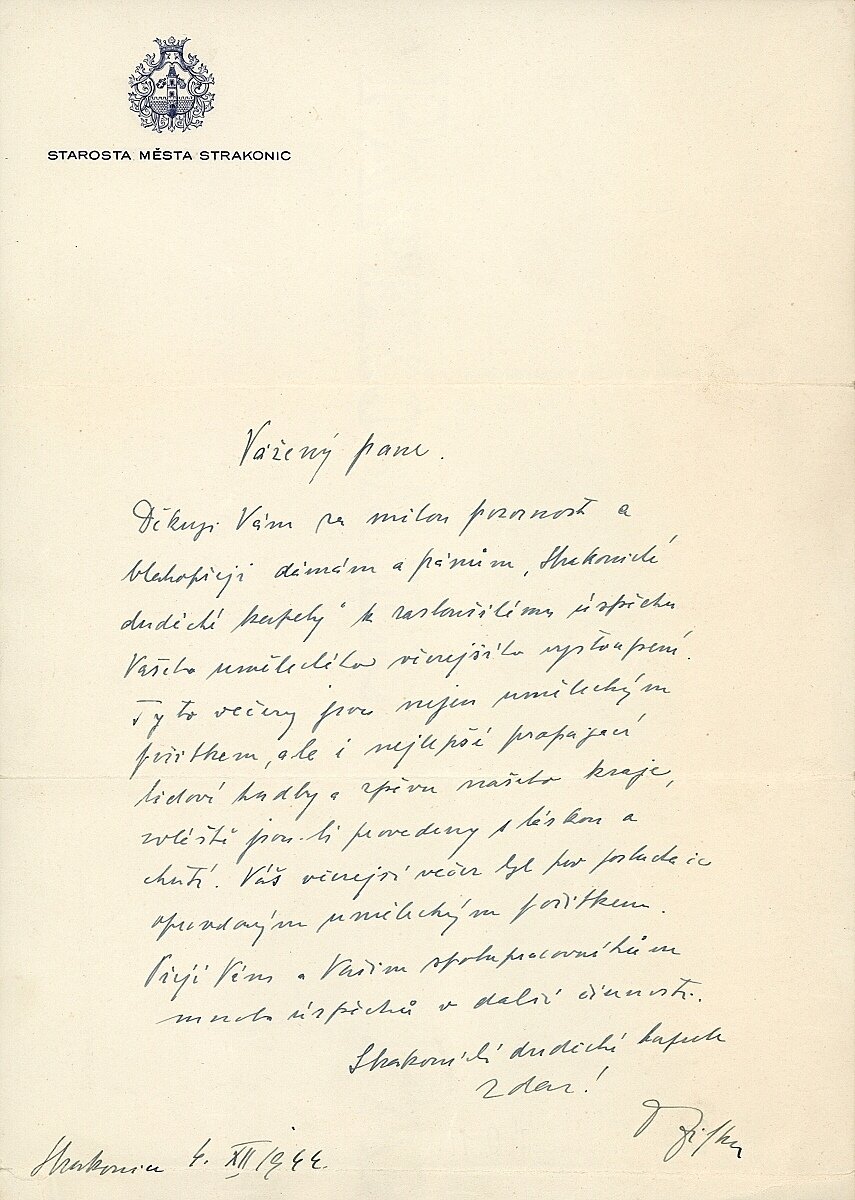 STAROSTA MĚSTA STRAKONIC
Vážený pane.
Děkuji Vám za milou pozornost a
blahopřeji dámám a pánům „Strakonické
dudácké kapely“ k zaslouženému úspěchu
Vašeho uměleckého včerejšího vystoupení.
Tyto večery jsou nejen uměleckým
požitkem, ale i nejlepší propagací
lidové hudby a zpěvu našeho kraje,
zvláště jsou-li provedeny s láskou a
chutí. Váš včerejší večer byl pro posluchače
opravdovým uměleckým požitkem.
Přeji Vám a Vašim spolupracovníkům
mnoho úspěchů v další činnosti.
Strakonické dudácké kapele
zdar!
Strakonice 4. XII 1944.